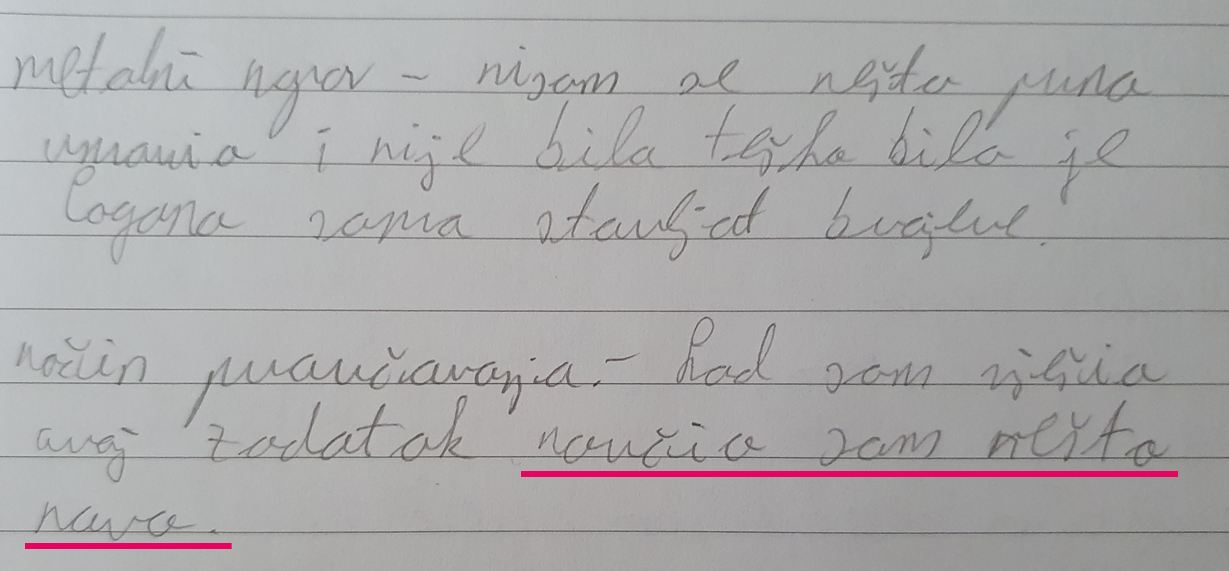 metalni ngor - nisam se nešto puno
umorio i nije bilo teško bilo je
logano samo stavljat brojeve.
način proučavanja. - kad sam riješio
ovaj zadatak naučio sam nešto
novo.